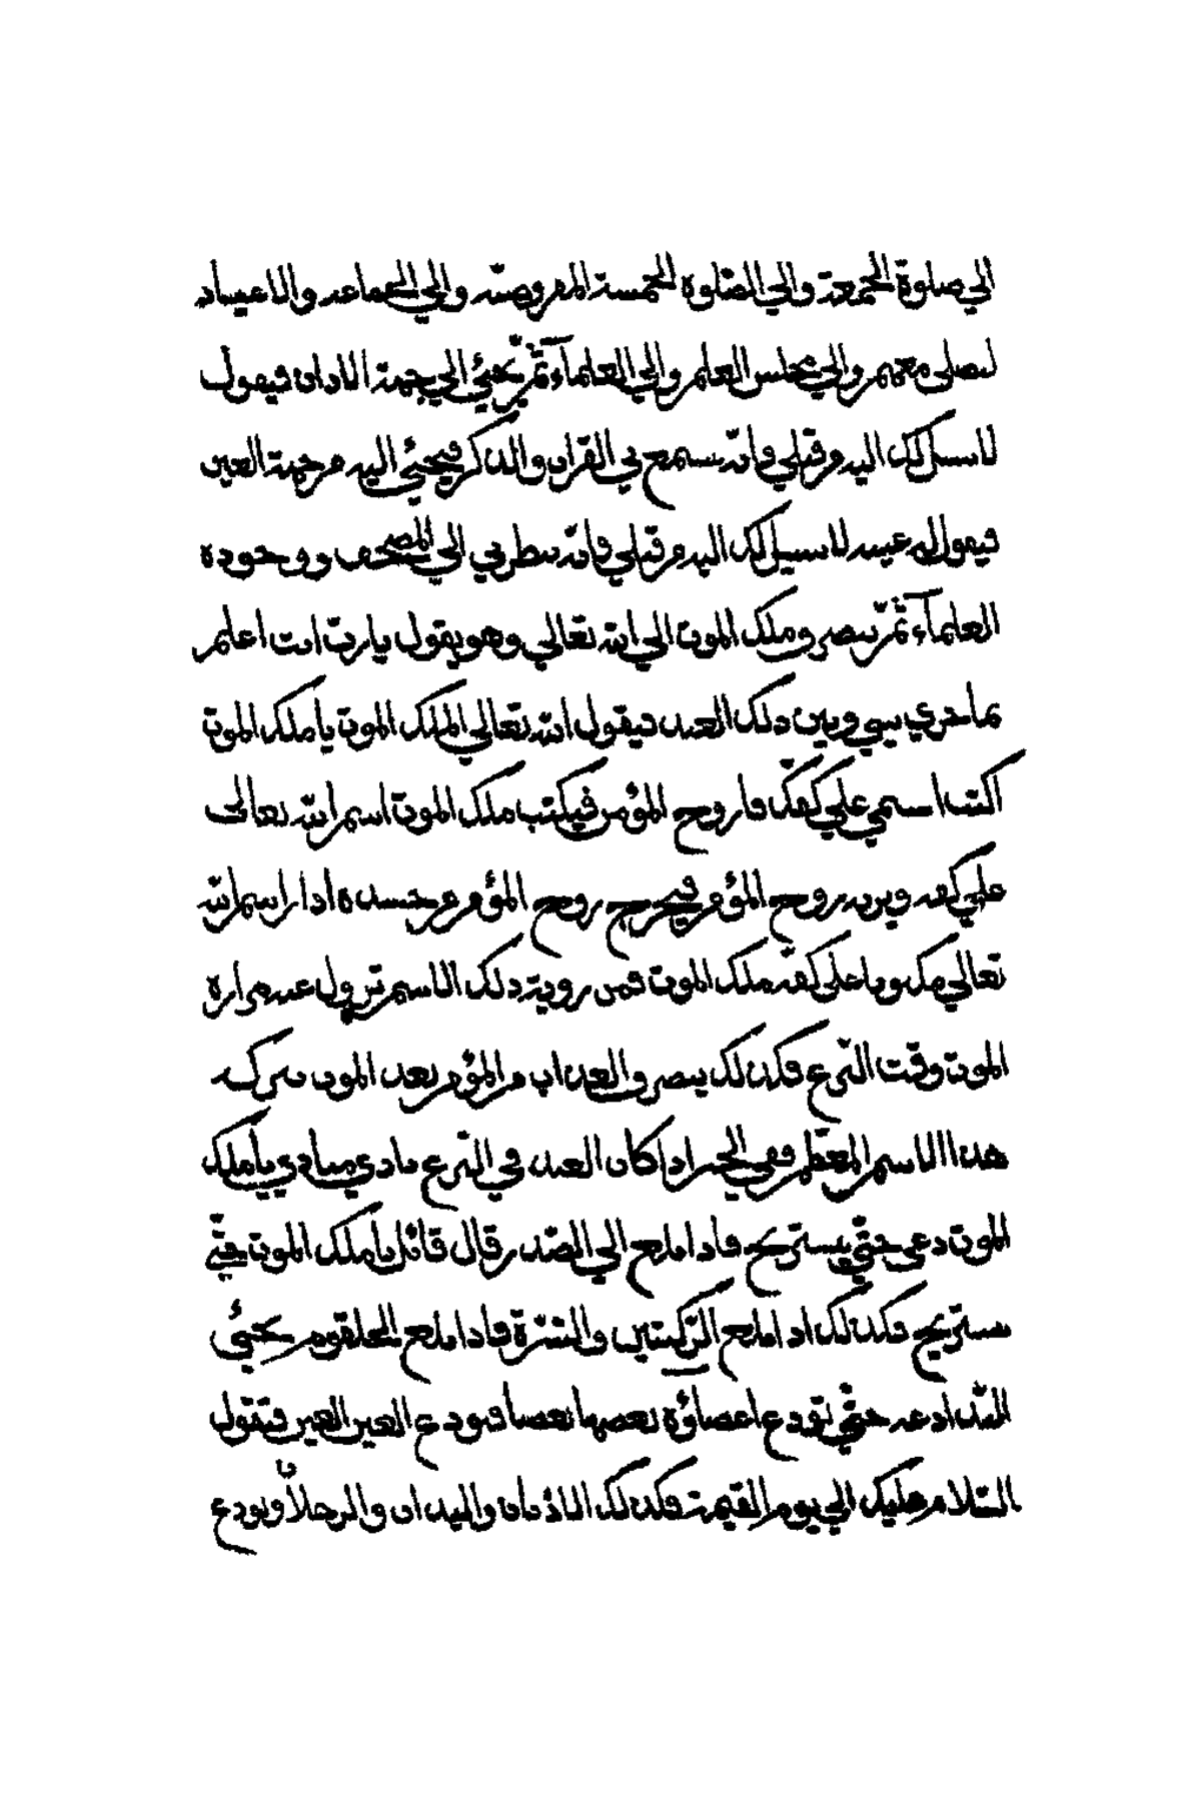 الي صلوة الجمعة والي الصلوة الخمسة المفروضة والي الجماعه والاعياد
لصلى معهم والي مجلس العلم والي العلمآء ثمّ يجيئ الي جهة الاذان فيقول
لا سبيل لك اليه من قبلي فانّه سمع بي القران والذكر فيجيئ اليه من جهة العين
فيقول له عينه لا سبيل لك اليه من قبلي فانّه ينظر بي الي المصحف ووجوه
العلمآء ثمّ ينصرف ملك الموت الي الله تعالي وهو يقول يا ربّ انت اعلم
بما جري بيني وبين ذلك العبد فيقول الله تعالي لملك الموت يا ملك الموت
اكتب اسمي علي كفّك فار روح المؤمن فيكتب ملك الموت اسم الله تعالى
علي كفه ويريه روح المؤمن فيخرج روح المؤمن من جسده اذا راي اسم الله
تعالي مكتوبا على كفّه ملك الموت فمن روية ذلك الاسم تزول عنه مرارة
الموت وقت النّزع فكذلك ينصرف العذاب من المؤمن بعد الموت ببركة
هذا الاسم المعظّم وفي الخبر اذا كان العبد في النّزع ينادي منادي يا ملك
الموت دعى حتّي يستريح فاذا بلغ الي الصّدر قال قائل يا ملك الموت حتّي
يستريح فكذلك اذا بلغ الرّكبتين والسّرّة فاذا بلغ الحلقوم يجيئ
النّدا دعه حتّي تودع اعضاؤه بعضها بعضا فيودع العين العين فتقول
السّلام عليك الي يوم القيمة فكذلك الاذنان واليدان والرجلان ويودع